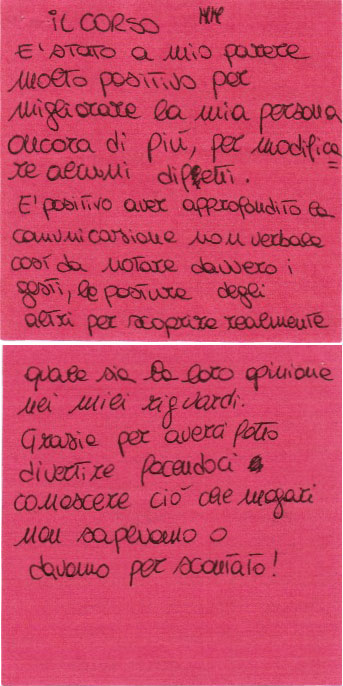 IL CORSO
E' STATO a mio parere
molto positivo per
migliorare la mia persona
ancora di più, per modifica
re alcuni difetti.
E' positivo aver approfondito la
comunicazione non verbale
così da notare davvero i
gesti, le posture degli
altri per scoprire realmente
quale sia la loro opinione
nei miei riguardi.
Grazie per averci fatto
divertire facendoci
conoscere ciò che magari
non sapevamo o
davamo per scontato!